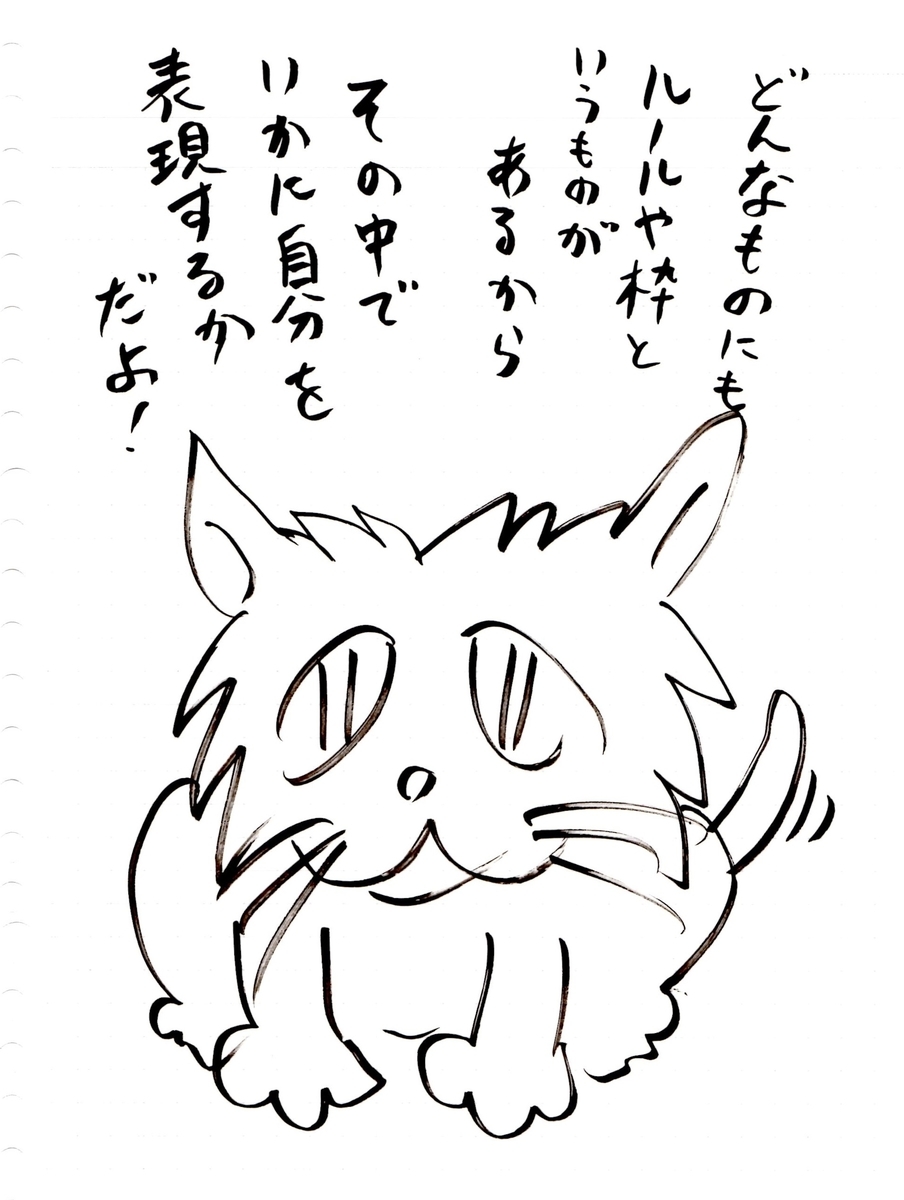 どんなものにも
ルールや枠と
いうものが
あるから
その中で
いかに自分を
表現するか
だよ!